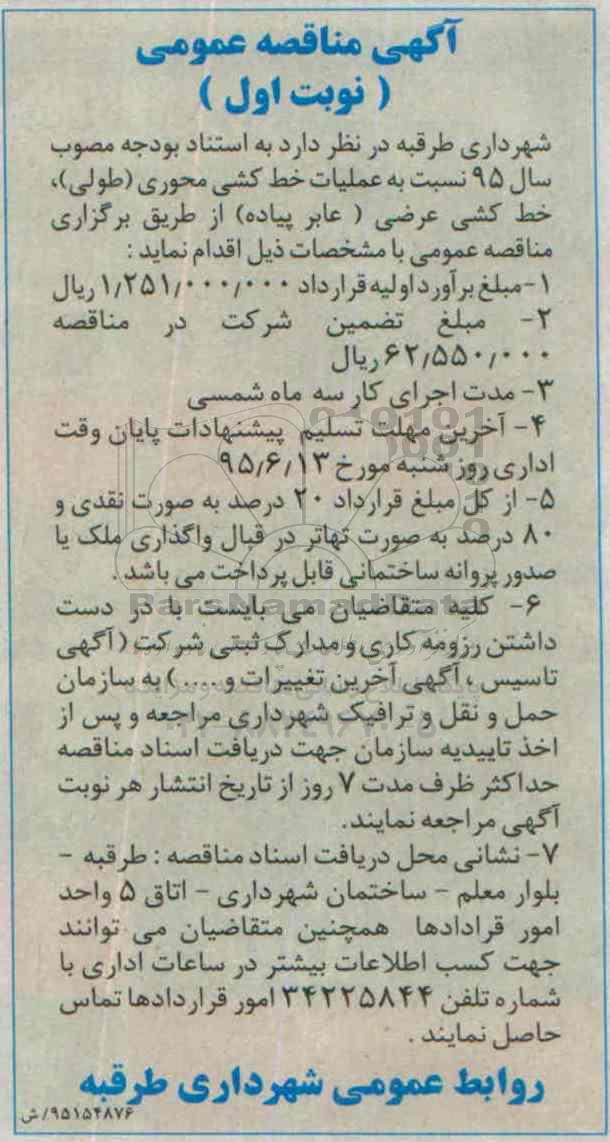 آگهی مناقصه عمومی
( نوبت اول )
شهرداری طرقبه در نظر دارد به استناد بودجه مصوب
سال ۹۵ نسبت به عملیات خط کشی محوری (طولی)،
خط کشی عرضی ( عابر پیاده) از طریق برگزاری
مناقصه عمومی با مشخصات ذیل اقدام نماید :
۱-مبلغ برآورد اولیه قرارداد ۱/۲۵۱/۰۰۰/۰۰۰ ریال
۲- مبلغ تضمین شرکت در مناقصه
۶۲/۵۵۰/۰۰۰ ریال
۳- مدت اجرای کار سه ماه شمسی
۴- آخرین مهلت تسلیم پیشنهادات پایان وقت
اداری روز شنبه مورخ ۹۵/۶/۱۳
۵- از کل مبلغ قرارداد ۲۰ درصد به صورت نقدی و
۸۰ درصد به صورت تهاتر در قبال واگذاری ملک یا
صدور پروانه ساختمانی قابل پرداخت می باشد .
ParsNamadData
۶- کلیه متقاضیان می بایست با در دست
داشتن رزومه کاری و مدارک ثبتی شرکت (آگهی
تاسیس ، آگهی آخرین تغییرات و .... ) به سازمان
حمل و نقل و ترافیک شهرداری مراجعه و پس از
اخذ تاییدیه سازمان جهت دریافت اسناد مناقصه
حداکثر ظرف مدت ۷ روز از تاریخ انتشار هر نوبت
آگهی مراجعه نمایند.
۷- نشانی محل دریافت اسناد مناقصه : طرقبه -
بلوار معلم - ساختمان شهرداری - اتاق ۵ واحد
امور قرادادها همچنین متقاضیان می توانند
جهت کسب اطلاعات بیشتر در ساعات اداری با
شماره تلفن ۳۴۲۲۵۸۴۴ امور قراردادها تماس
حاصل نمایند .
روابط عمومی شهرداری طرقبه
۹۵۱۵۴۸۷۶/ش